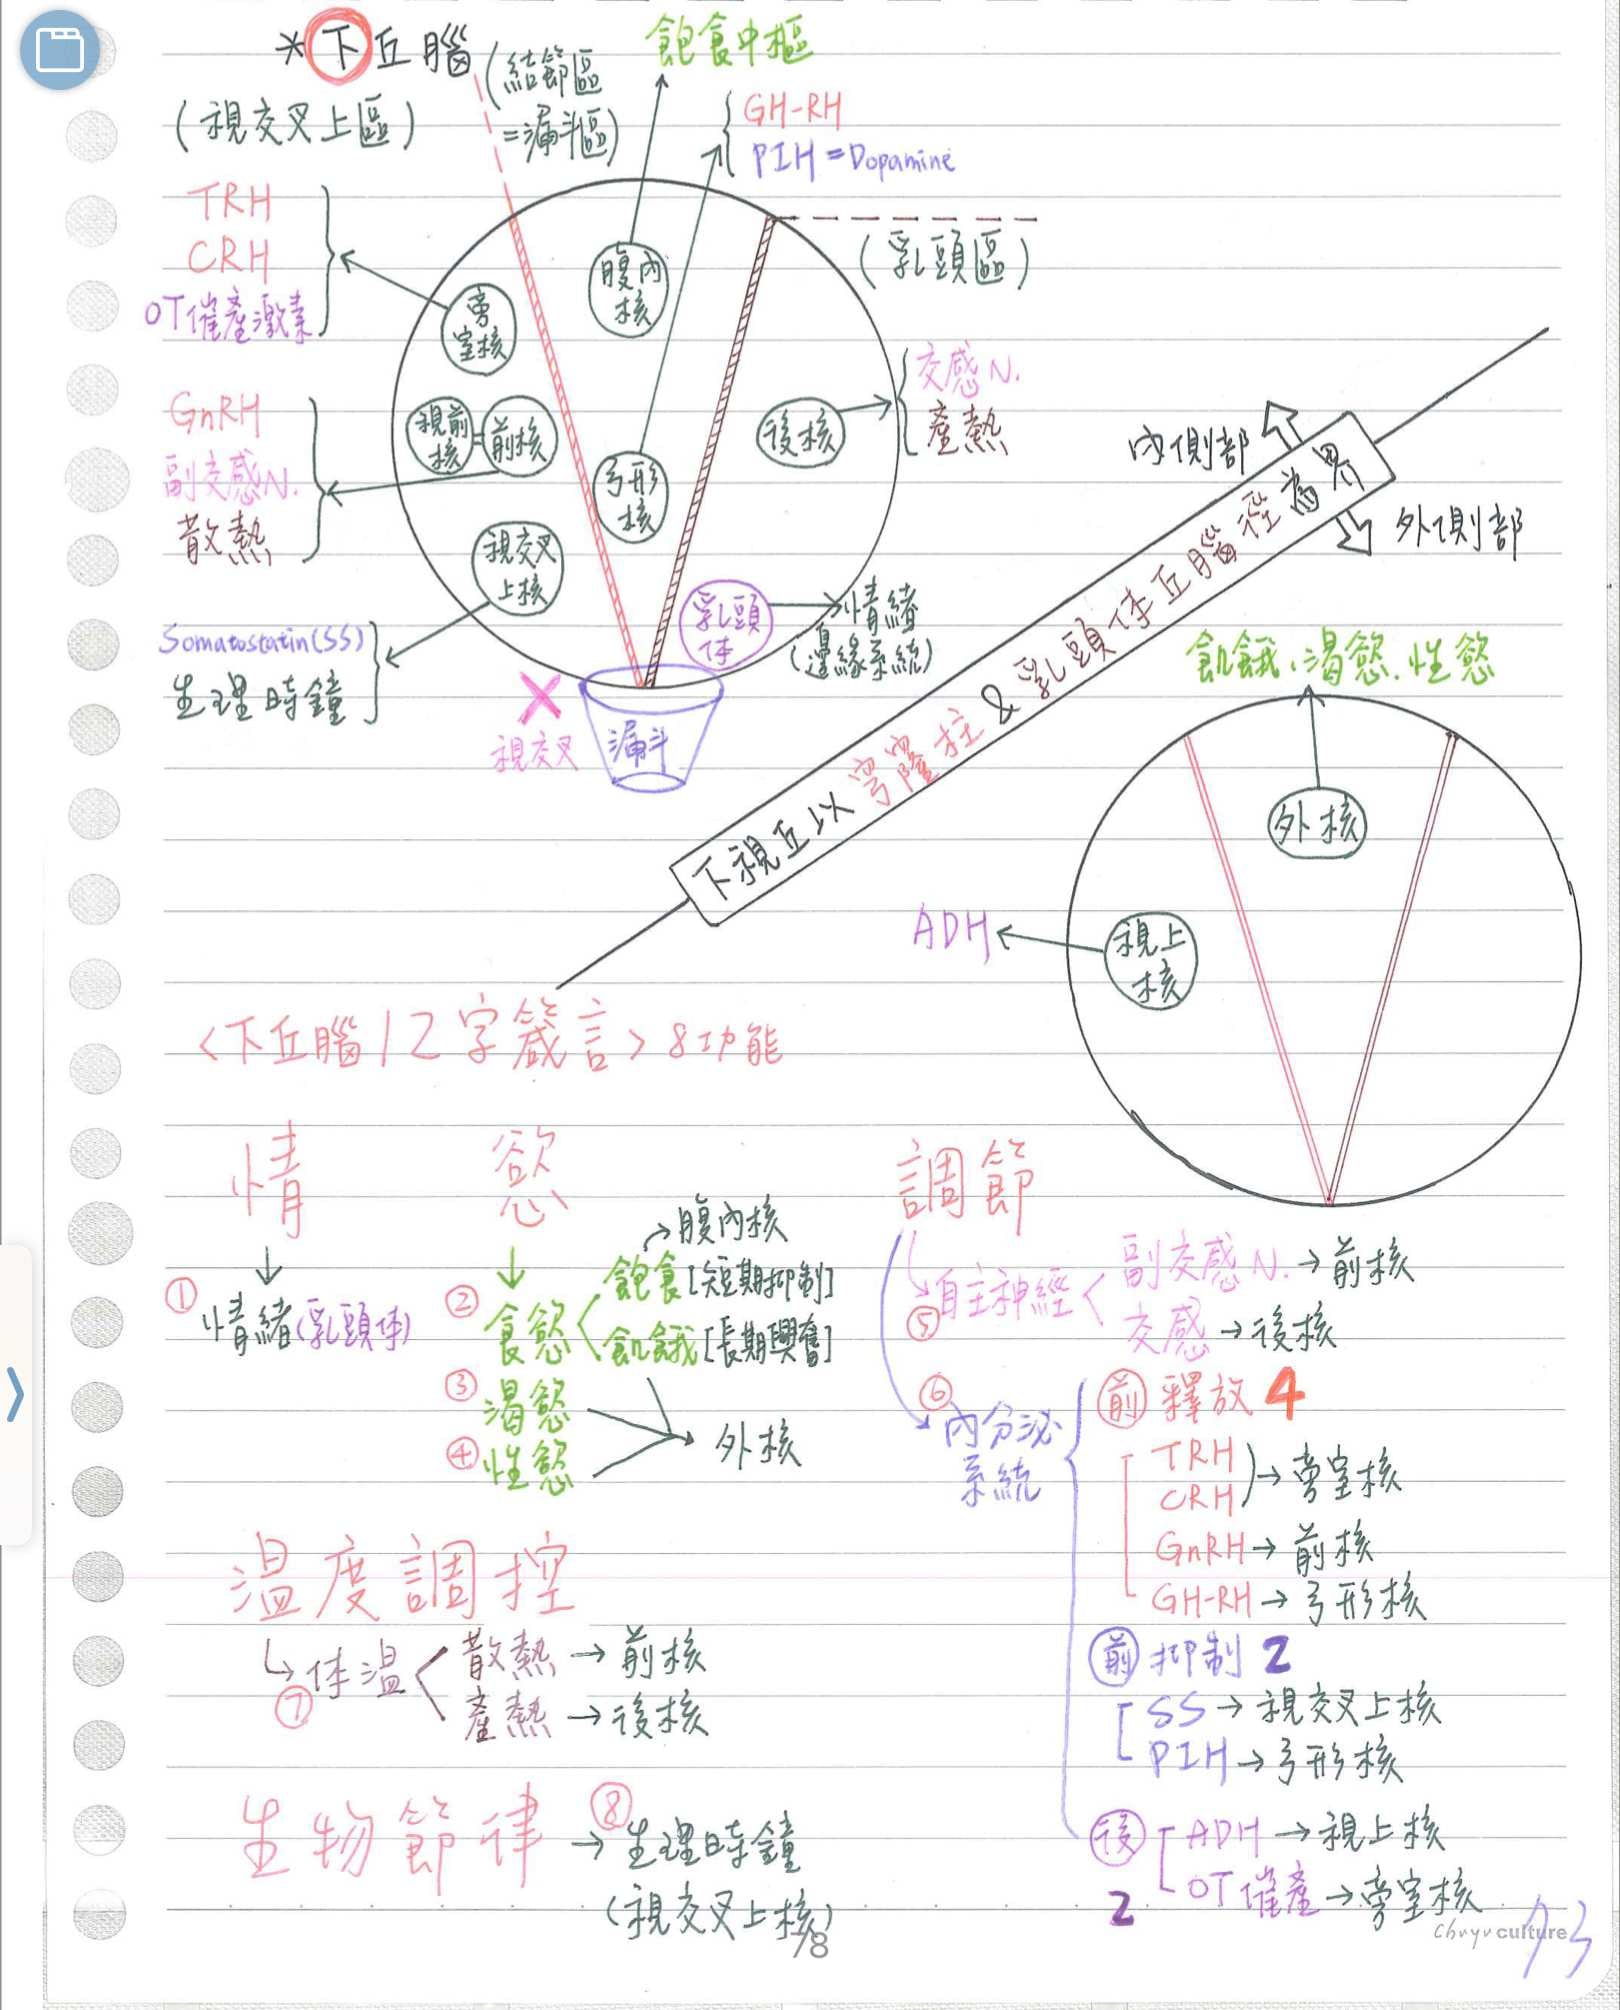 *下丘腦
(結節區
=漏斗區)
(視交叉上區)
飽食中樞
GH-RH
PIH=Dopamine
TRH
CRH
OT催產激素
(乳頭區)
腹內核
旁室核
GnRH
副交感N.
散熱
視前核
前核
弓形核
後核
交感N.
產熱
視交叉上核
Somatostatin(SS)
生理時鐘
乳頭体
情緒
(邊緣系統)
視交叉
漏斗
內側部
外側部
下視丘以穹窿柱&乳頭体丘腦徑為界
飢餓、渴慾.性慾
外核
ADH
視上核
<下丘腦12字箴言>8功能
情
慾
調節
① 情緒(乳頭体)
② 食慾
飽食[短期抑制]
腹內核
飢餓[長期興奮]
③ 渴慾
④ 性慾
外核
⑤ 自主神經
副交感N.→前核
交感→後核
⑥ 內分泌系統
前 釋放 4
TRH
CRH
→旁室核
GnRH→前核
GH-RH→弓形核
前 抑制 2
SS→視交叉上核
PIH→弓形核
後 ADH→視上核
OT催產→旁室核
2
溫度調控
⑦ 体溫
散熱→前核
產熱→後核
生物節律→⑧生理時鐘
(視交叉上核)
78
Chuyu culture
73